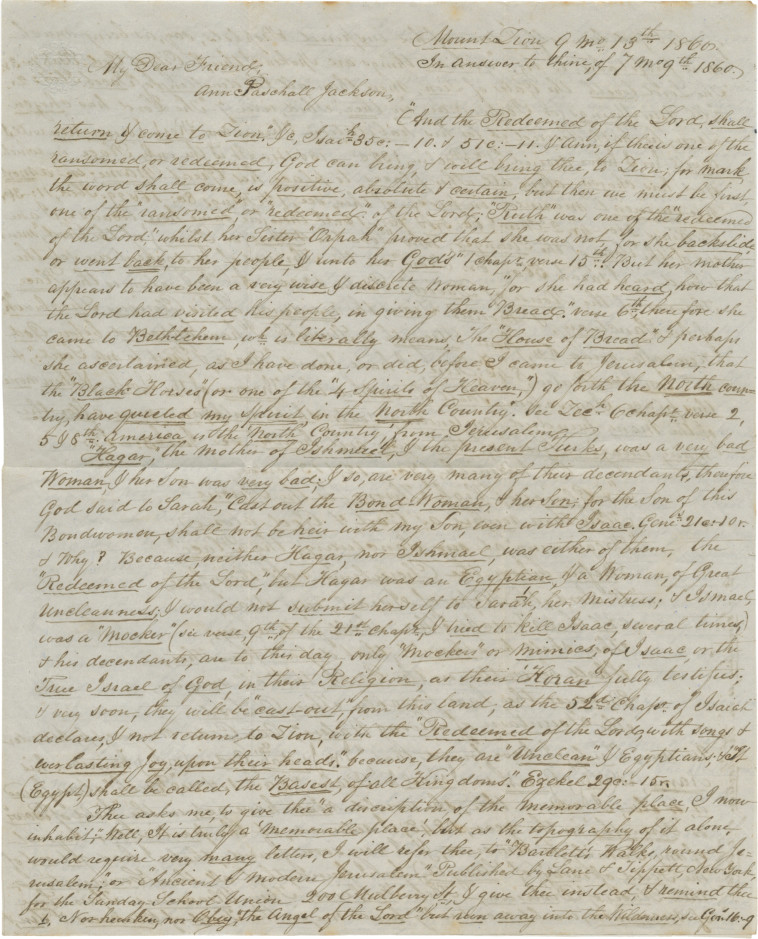 Mount Zion 9 mo 13th 1860.
In answer to thine, of 7 mo 9th 1860.
My Dear Friend,
Ann Paschall Jackson,
"And the Redeemed of the Lord, shall
return & come to Zion." &c, Isaih 35c:-10. & 51c:-11. & Ann, if theis one of the
ransomed, or redeemed, God can bring, & will bring thee, to Zion; for mark,
the word shall come, is positive, absolute & certain, but then we must be first,
one of the "ransomed" or "redeemed" of the Lord; "Ruth" was one of the "redeemed
of the Lord" whilst her Sister "Orpah" proved that she was not, for she backslide
or went back, to her people, & unto her God's "1 chapt. verse 15th. But her mother
appears to have been a very wise & discrete Woman, "for she had heard, how that
the Lord had visited his people, in giving them Bread." verse 6th, therefore she
came to Bethlehem, wh. is literally means, The "House of Bread" & perhaps
she ascertained, as I have done, or did, before I came to Jerusalem, that
the "Black Horses" (or one of the "4 Spirits of Heaven,") go forth the North coun-
try, have quieted my Spirit in the North Country". See Zech. 6 chapt. verse 2,
5 & 8th. America is the "North" Country from Jerusalem,
"Hagar, the Mother of Ishmael," & the present Turks, was a very bad
Woman, & her Son was very bad; & so, are very many of their decendants, therefore
God said to Sarah, "Cast out the Bond Woman, & her Son; for the Son of this
Bondwomen, shall not be heir with my Son, even with Isaac. Gens. 21c:-10v.
& Why? Because, neither Hagar, nor Ishmael, was either of them, the
"Redeemed of the Lord," but Hagar was an Egyptian, & a Woman, of Great
Uncleanness; & would not submit herself to Sarah, her Mistress; & Ismael,
was a "Mocker" (see verse, 9th, of the 21st Chapt., & tried to kill Isaac, several times,)
& his decendants, are to this day, only "Mockers" or mimics, of Isaac, or the
True Israel of God, in their Religion, as their "Horan" fully testifies;
& very soon, they will be "cast out" from this land, as the 52d Chapr. of Isaiah
declares, & not return to Zion, with the "Redeemed of the Lord, with songs &
everlasting Joy, upon their heads." because, they are "Unclean" & Egyptians, "It
(Egypt) shall be called, the Basest, of all Kingdoms". Ezekel 29c:-15v.
Thee asks me, to give thee "a discription of the memorable place, I now
inhabit; Well, It is truly a 'memorable place', but as the topography of it alone,
would require very many letters, I will refer thee, to "Bartlett's Walks, round Je-
rusalem," or "Ancient & modern Jerusalem" Published by Lane & Tippett, New York,
for the Sunday School Union 200 Mulberry St, & give thee instead, & remind thee
Nor hearken, nor Obey, "the Angel of the Lord" but run away into the Wilderness, see Gen. 16.-9